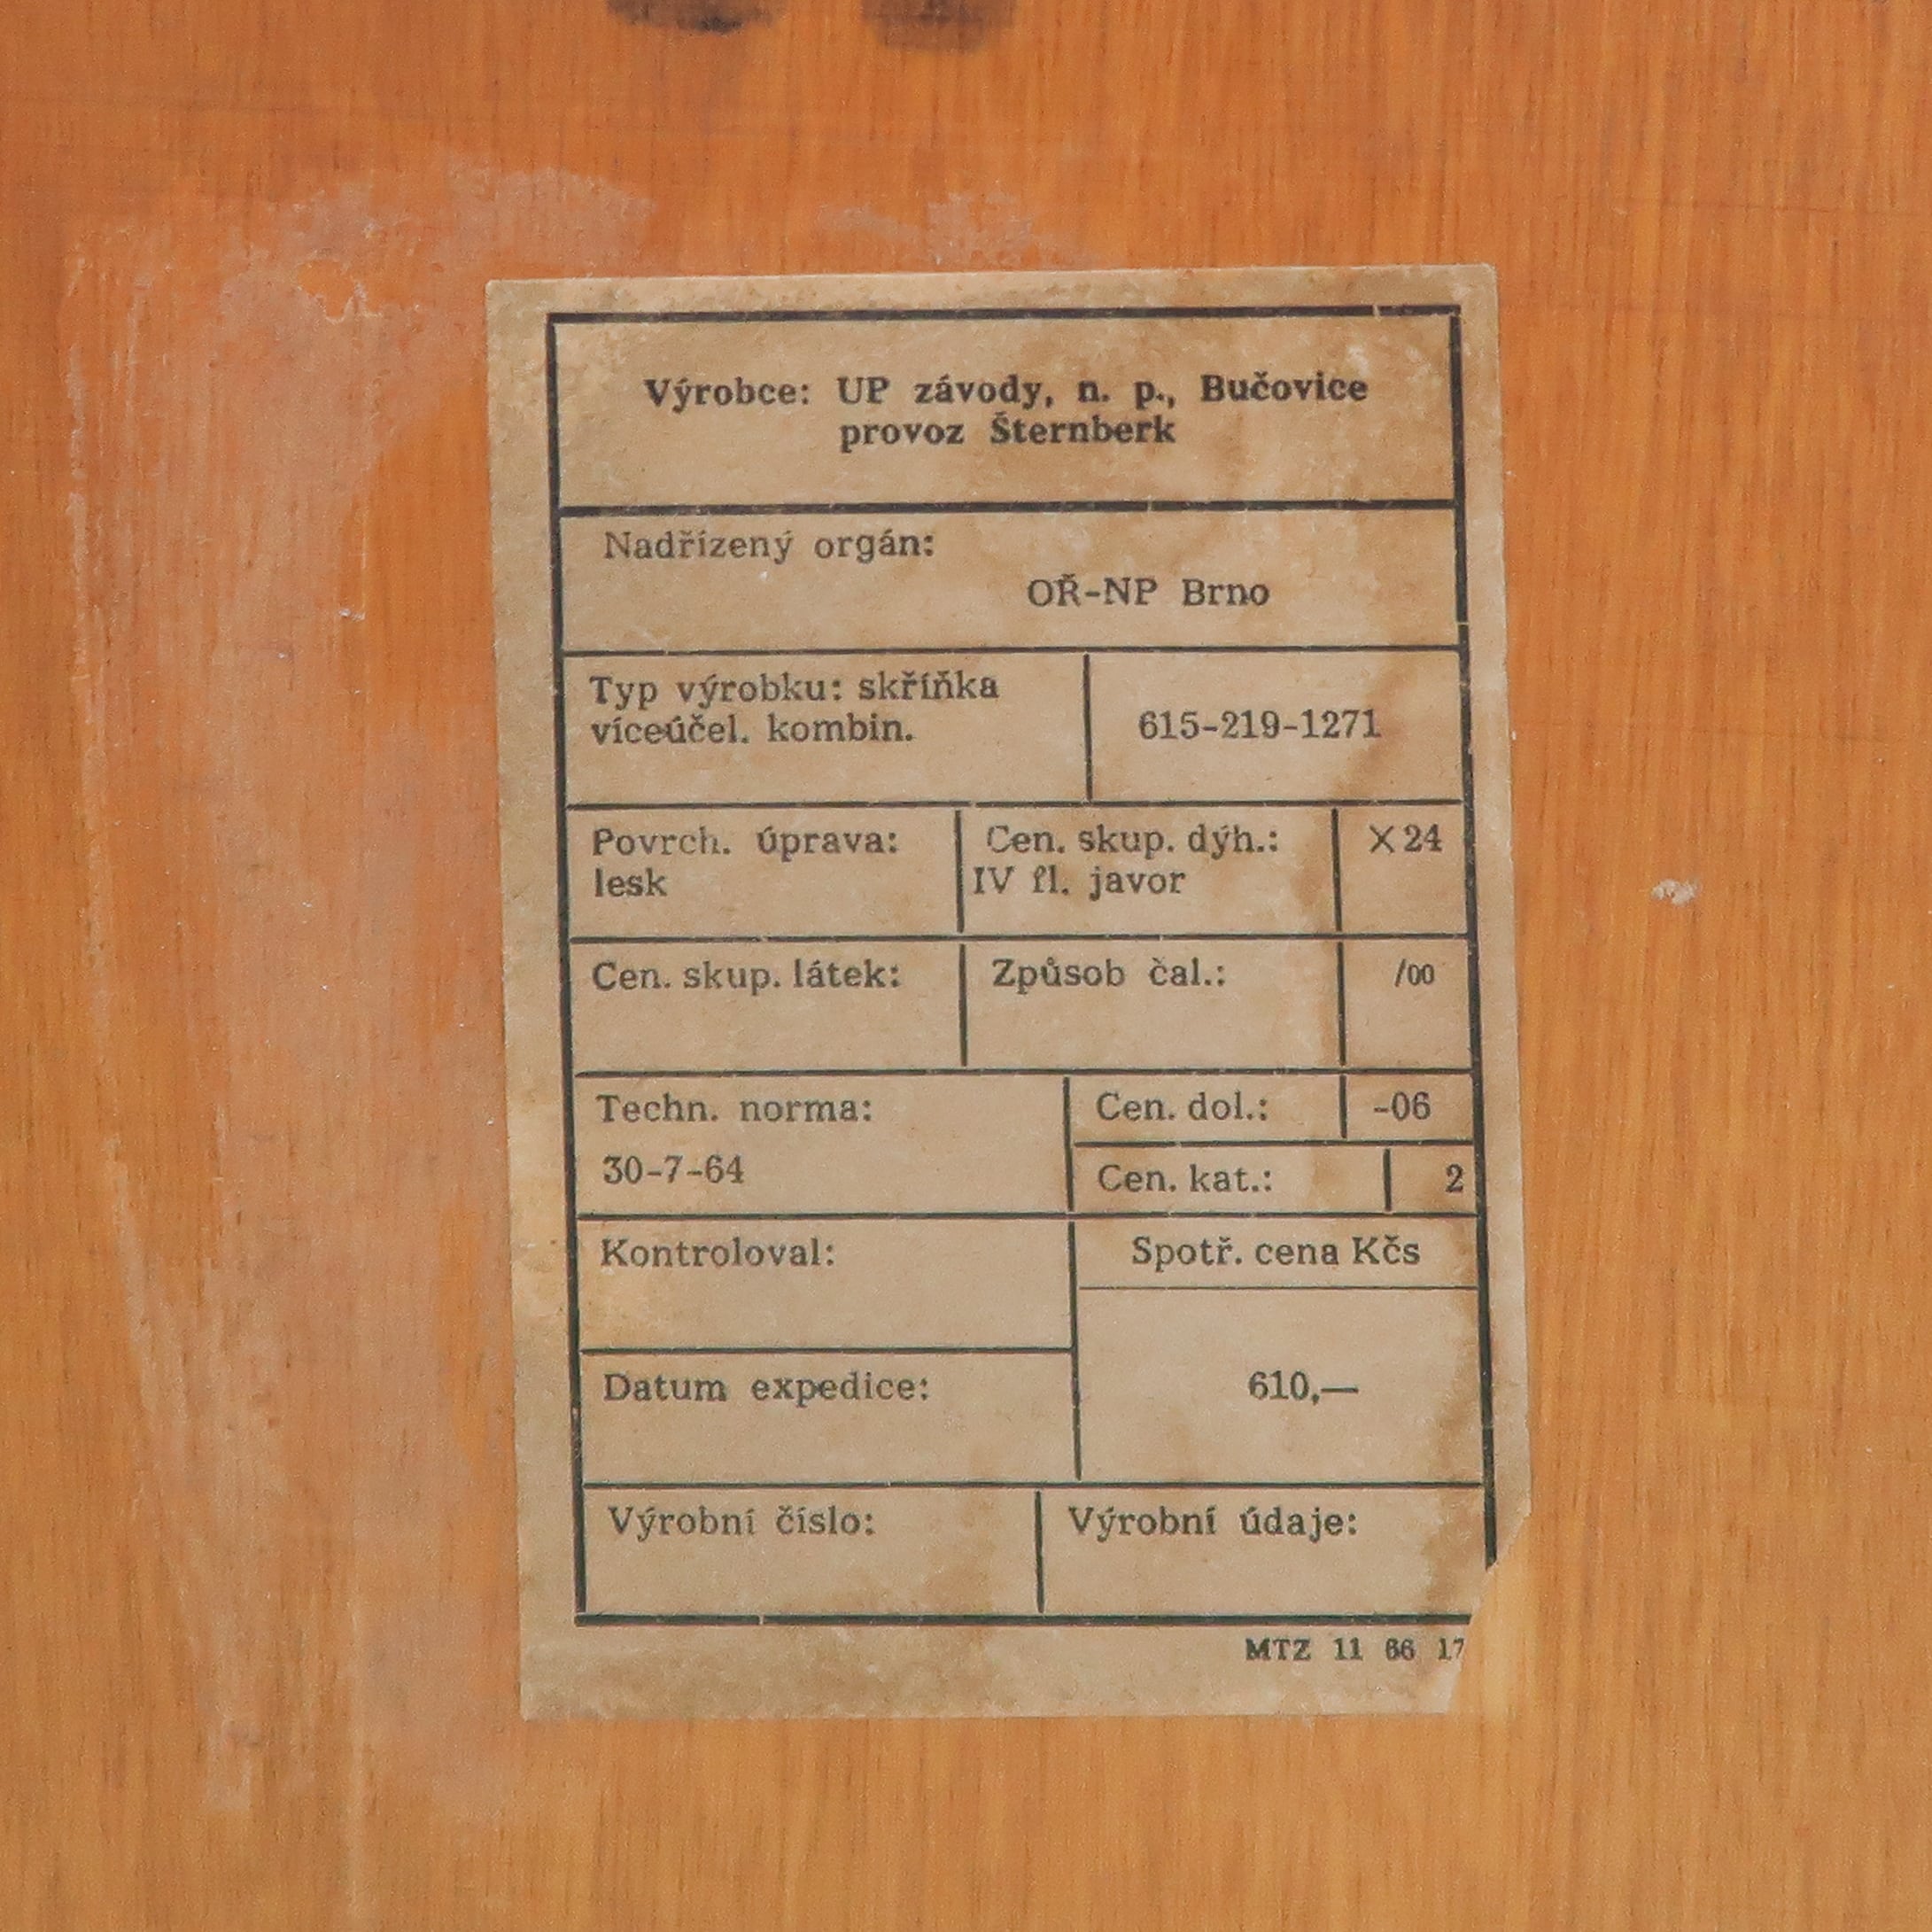 Výrobce: UP závody, n. p., Bučovice
provoz Šternberk
Nadřízený orgán:
OŘ-NP Brno
Typ výrobku: skříňka
víceúčel. kombin.
615-219-1271
Povrch. úprava:
lesk
Cen. skup. dýh.:
IV fl. javor
X 24
Cen. skup. látek:
Způsob čal.:
/00
Techn. norma:
30-7-64
Cen. dol.:
-06
Cen. kat.:
2
Kontroloval:
Spotř. cena Kčs
Datum expedice:
610,—
Výrobní číslo:
Výrobní údaje:
MTZ 11 66 17